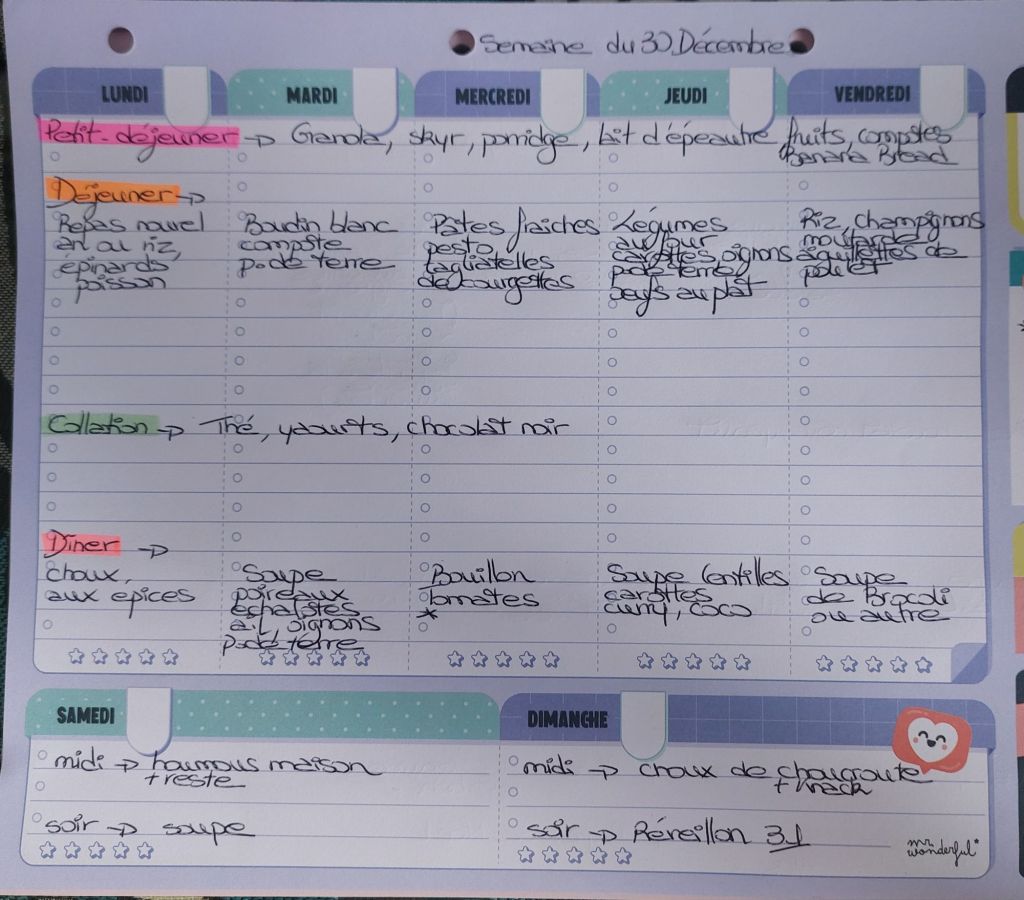 Semaine du 30 Décembre
LUNDI MARDI MERCREDI JEUDI VENDREDI
Petit-déjeuner → Granola, skyr, porridge, lait d'épeautre, fruits, compotes
Banana Bread
Déjeuner →
Repas nouvel
an ou riz,
épinards,
poisson
Boudin blanc
compote
p. de terre
Pâtes fraîches
pesto,
tagliatelles
de courgettes
Légumes
au four
carottes, oignons
p. de terre,
oeufs au plat
Riz, champignons
moutarde
aiguillettes de
poulet
Collation → Thé, yaourts, chocolat noir
Dîner →
choux,
aux epices
Soupe
poireaux
échalotes
ail, oignons
p. de terre
Bouillon
tomates
*
Soupe lentilles
carottes
curry, coco
Soupe
de Brocoli
ou autre
SAMEDI
midi → houmous maison
+ reste
soir → soupe
DIMANCHE
midi → choux de chougroute
+
soir → Réveillon 31
mr.
wonderful*